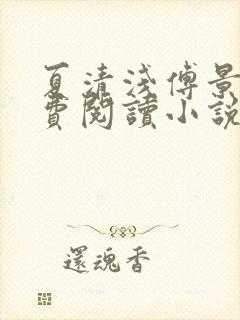 夏清浅傅景
費閱讀小說
還魂香